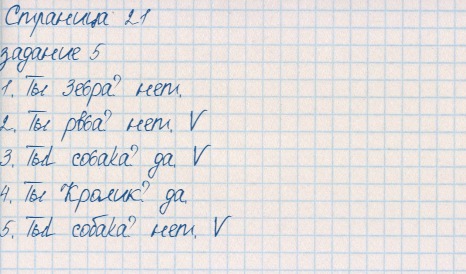 Страница 21
задание 5
1. Ты Зебра? нет.
2. Ты рыба? нет. V
3. Ты собака? да. V
4. Ты Кролик? да.
5. Ты собака? нет. V